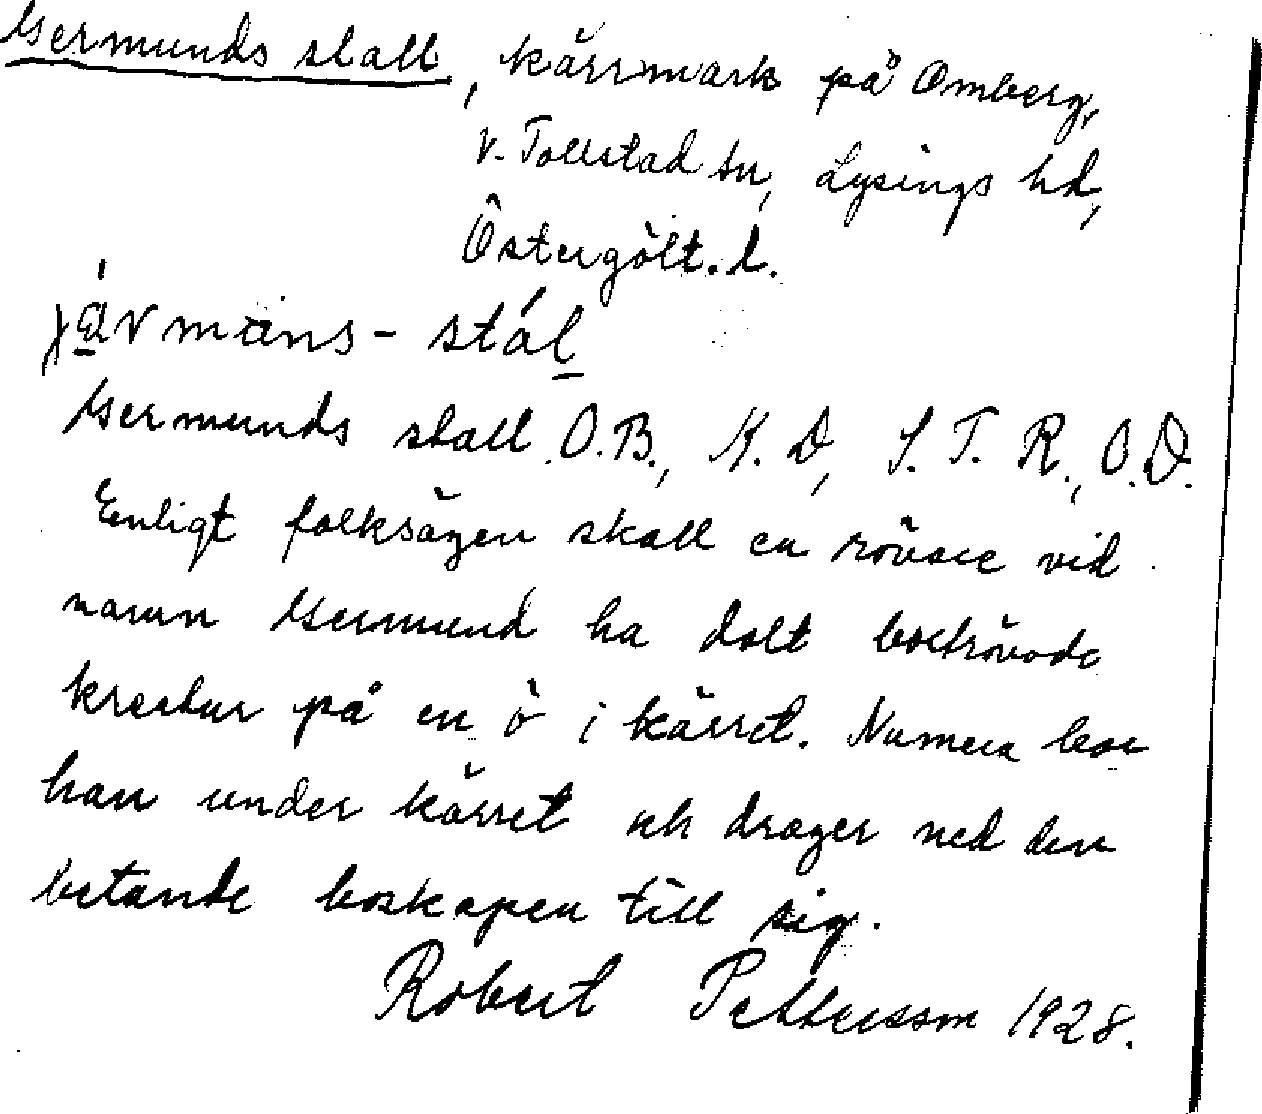 Germunds stall, kärrmark på Omberg,
V. Tollstad sn, Lysings hd,
Östergötl. l.
jä́rmäns-stál
Germunds stall O.B., K.D, S.T.R., O.D.
Enligt folksägen skall en rövare vid
namn Germund ha dolt bortrövade
kreatur på en ö i kärret. Numera bor
han under kärret och drager ned den
betande boskapen till sig.
Robert Pettersson 1928.